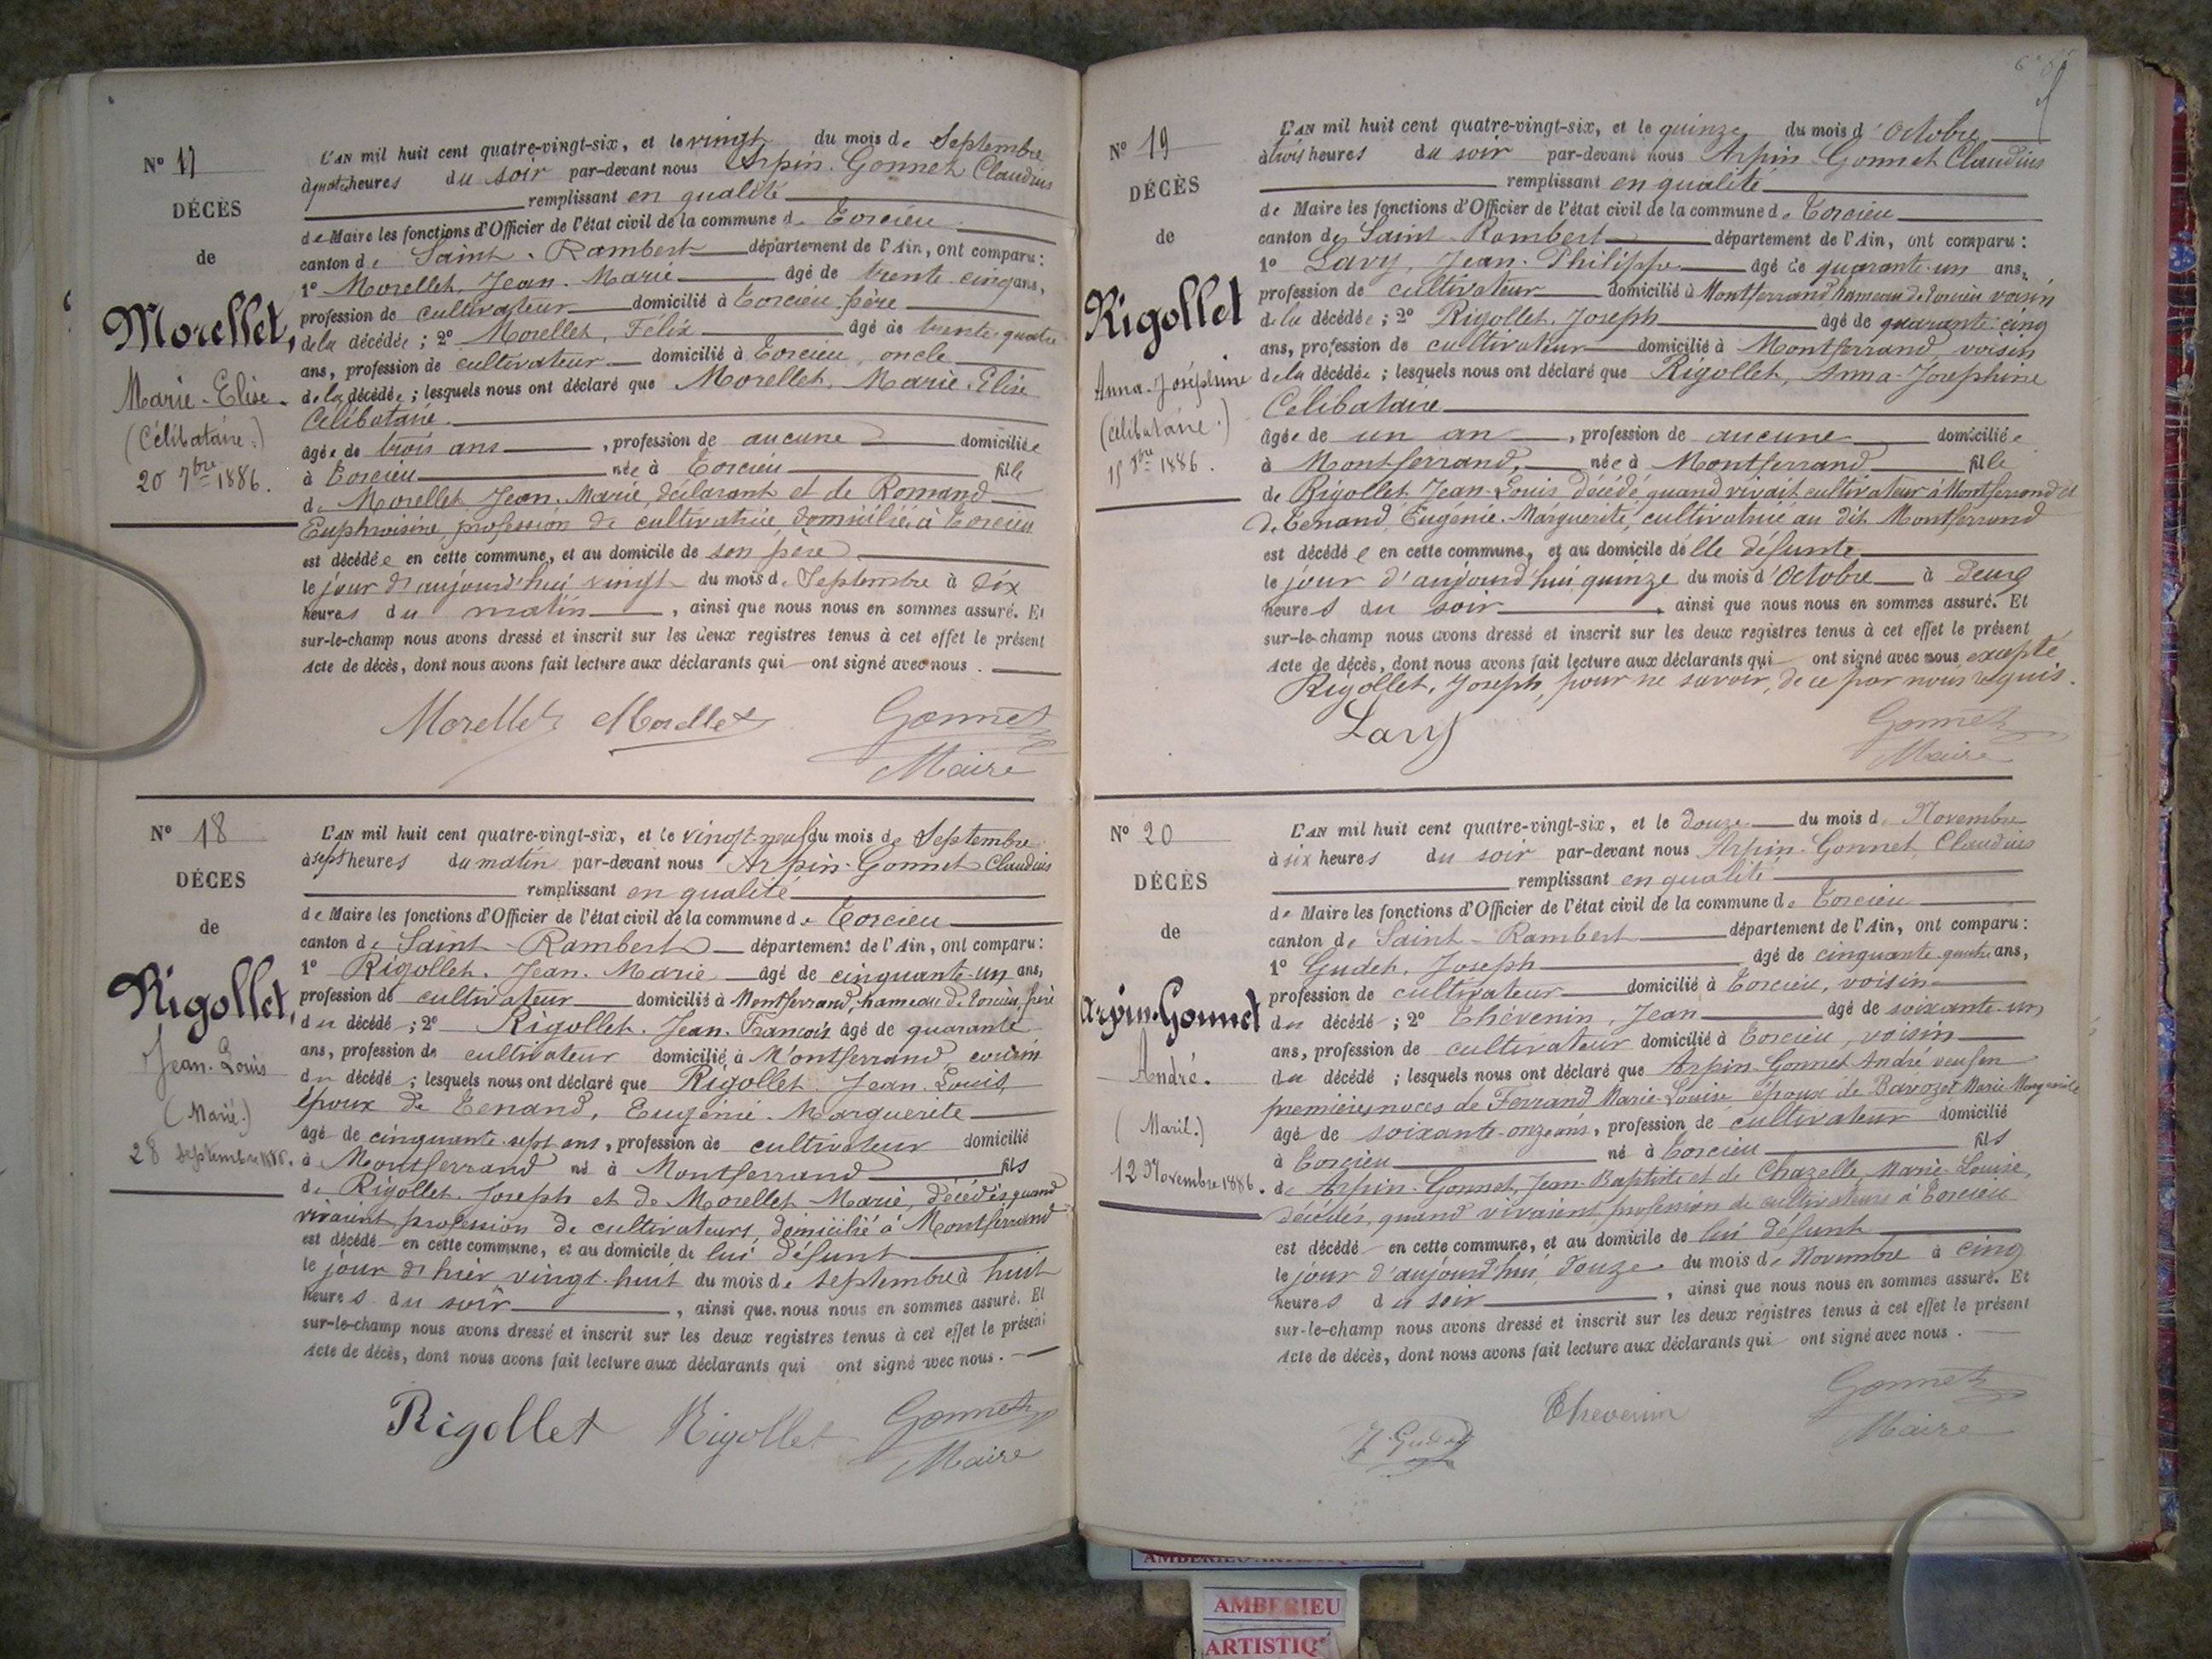 Nº 17
DÉCÈS
de
Morellet,
Marie-Elise.
(Célibataire.)
20 7bre 1886.
L'AN mil huit cent quatre-vingt-six, et le vingt du mois de Septembre
à quatre heures du soir par-devant nous Arpin-Gonnet Claudius
remplissant en qualité
de Maire les fonctions d'Officier de l'état civil de la commune de Torcieu
canton de Saint-Rambert département de l'Ain, ont comparu:
1º Morellet, Jean-Marie âgé de trente-cinq ans,
profession de cultivateur domicilié à Torcieu, père
de la décédée; 2º Morellet, Félix âgé de trente-quatre
ans, profession de cultivateur domicilié à Torcieu, oncle
de la décédée; lesquels nous ont déclaré que Morellet, Marie-Elise
Célibataire.
âgée de trois ans, profession de aucune domiciliée
à Torcieu née à Torcieu fille
de Morellet Jean-Marie, déclarant et de Romand
Euphroisine, profession de cultivatrice, domiciliée à Torcieu
est décédée en cette commune, et au domicile de son père
le jour d'aujourd'hui vingt du mois de Septembre à dix
heures du matin, ainsi que nous nous en sommes assuré. Et
sur-le-champ nous avons dressé et inscrit sur les deux registres tenus à cet effet le présent
Acte de décès, dont nous avons fait lecture aux déclarants qui ont signé avec nous.
Morellet Morellet Gonnet
Maire
Nº 18
DÉCES
de
Rigollet,
Jean-Louis
(Marié.)
28 Septembre 1886.
L'AN mil huit cent quatre-vingt-six, et le vingt-neuf du mois de Septembre
à sept heures du matin par-devant nous Arpin-Gonnet Claudius
remplissant en qualité
de Maire les fonctions d'Officier de l'état civil de la commune de Torcieu
canton de Saint-Rambert département de l'Ain, ont comparu:
1º Rigollet, Jean-Marie âgé de cinquante-un ans,
profession de cultivateur domicilié à Montferrand, hameau de Torcieu, frère
du décédé; 2º Rigollet, Jean-François âgé de quarante
ans, profession de cultivateur domicilié à Montferrand cousin
du décédé; lesquels nous ont déclaré que Rigollet Jean-Louis
époux de Tenand, Eugénie-Marguerite
âgé de cinquante-sept ans, profession de cultivateur domicilié
à Montferrand né à Montferrand fils
de Rigollet, Joseph et de Morellet Marie, décédés quand
vivaient profession de cultivateurs, domicilié à Montferrand
est décédé en cette commune, et au domicile de lui défunt
le jour d'hier vingt-huit du mois de septembre à huit
heures du soir, ainsi que nous nous en sommes assuré. Et
sur-le-champ nous avons dressé et inscrit sur les deux registres tenus à cet effet le présent
Acte de décès, dont nous avons fait lecture aux déclarants qui ont signé avec nous.
Rigollet Rigollet Gonnet
Maire
Nº 19
DÉCÈS
de
Rigollet
Anna-Joséphine
(Célibataire.)
15 8bre 1886.
L'AN mil huit cent quatre-vingt-six, et le quinze du mois d'Octobre
à trois heures du soir par-devant nous Arpin-Gonnet Claudius
remplissant en qualité
de Maire les fonctions d'Officier de l'état civil de la commune de Torcieu
canton de Saint-Rambert département de l'Ain, ont comparu:
1º Lavy, Jean-Philippe âgé de quarante-un ans,
profession de cultivateur domicilié à Montferrand hameau de Torcieu voisin
de la décédée; 2º Rigollet, Joseph âgé de quarante-cinq
ans, profession de cultivateur domicilié à Montferrand, voisin
de la décédée; lesquels nous ont déclaré que Rigollet, Anna-Josephine
Célibataire
âgée de un an, profession de aucune domiciliée
à Montferrand, née à Montferrand fille
de Rigollet Jean-Louis décédé, quand vivait cultivateur à Montferrand et
de Tenand, Eugénie-Marguerite, cultivatrice au dit Montferrand
est décédée en cette commune, et au domicile d'elle défunte
le jour d'aujourd'hui quinze du mois d'Octobre à deux
heures du soir, ainsi que nous nous en sommes assuré. Et
sur-le-champ nous avons dressé et inscrit sur les deux registres tenus à cet effet le présent
Acte de décès, dont nous avons fait lecture aux déclarants qui ont signé avec nous, excepté
Rigollet, Joseph, pour ne savoir, de ce par nous requis.
Lavy Gonnet
Maire
Nº 20
DÉCÈS
de
Arpin-Gonnet
André.
12 Novembre 1886.
L'AN mil huit cent quatre-vingt-six, et le douze du mois de Novembre
à six heures du soir par-devant nous Arpin-Gonnet, Claudius
remplissant en qualité
de Maire les fonctions d'Officier de l'état civil de la commune de Torcieu
canton de Saint-Rambert département de l'Ain, ont comparu:
1º Gudet, Joseph âgé de cinquante-quatre ans,
profession de cultivateur domicilié à Torcieu, voisin
du décédé; 2º Thévenin, Jean âgé de soixante-un
ans, profession de cultivateur domicilié à Torcieu, voisin
du décédé; lesquels nous ont déclaré que Arpin-Gonnet André veuf en
premières noces de Ferrand Marie-Louise époux de Bavozet Marie Marguerite
âgé de soixante-onze ans, profession de cultivateur domicilié
à Torcieu né à Torcieu fils
de Arpin-Gonnet, Jean-Baptiste et de Chazelle, Marie-Louise,
décédés, quand vivaient profession de cultivateurs à Torcieu
est décédé en cette commune, et au domicile de lui défunt
le jour d'aujourd'hui, douze du mois de Novembre à cinq
heures du soir, ainsi que nous nous en sommes assuré. Et
sur-le-champ nous avons dressé et inscrit sur les deux registres tenus à cet effet le présent
Acte de décès, dont nous avons fait lecture aux déclarants qui ont signé avec nous.
J. Gudet Thevenin Gonnet
Maire
AMBERIEU
ARTISTIQ